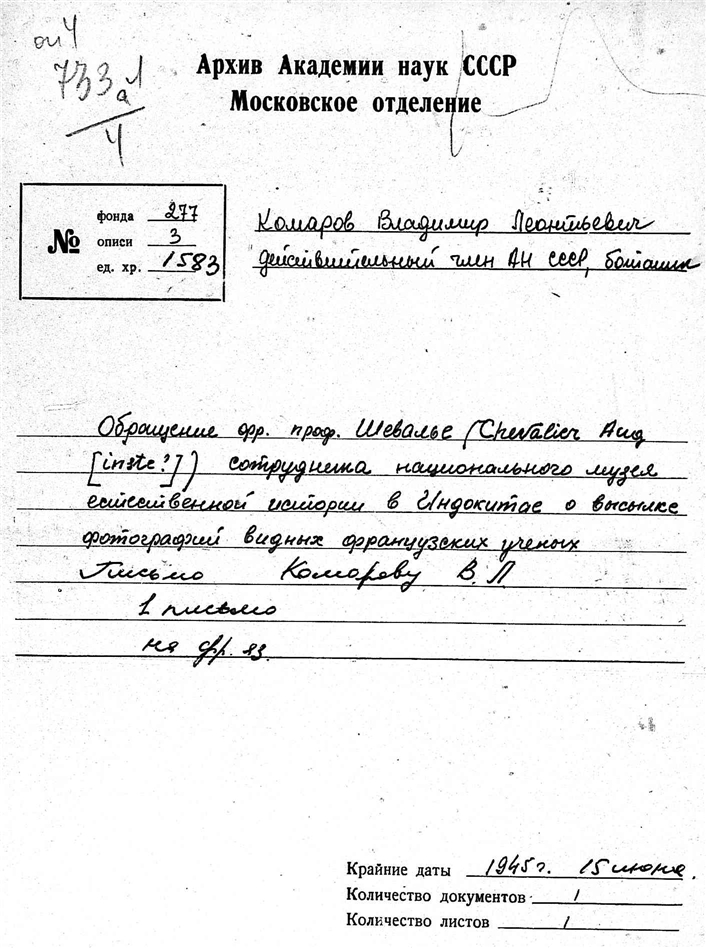 оп 4
733а
4
Архив Академии наук СССР
Московское отделение
№
фонда 277
описи 3
ед. хр. 1583
Комаров Владимир Леонтьевич
действительный член АН СССР, ботаник
Обращение фр. проф. Шевалье (Chevalier Aug
[inste?]) сотрудника национального музея
естественной истории в Индокитае о высылке
фотографий видных французских ученых
Письмо Комарову В.Л
1 письмо
на фр. яз.
Крайние даты 1945 г. 15 июня.
Количество документов 1
Количество листов 1